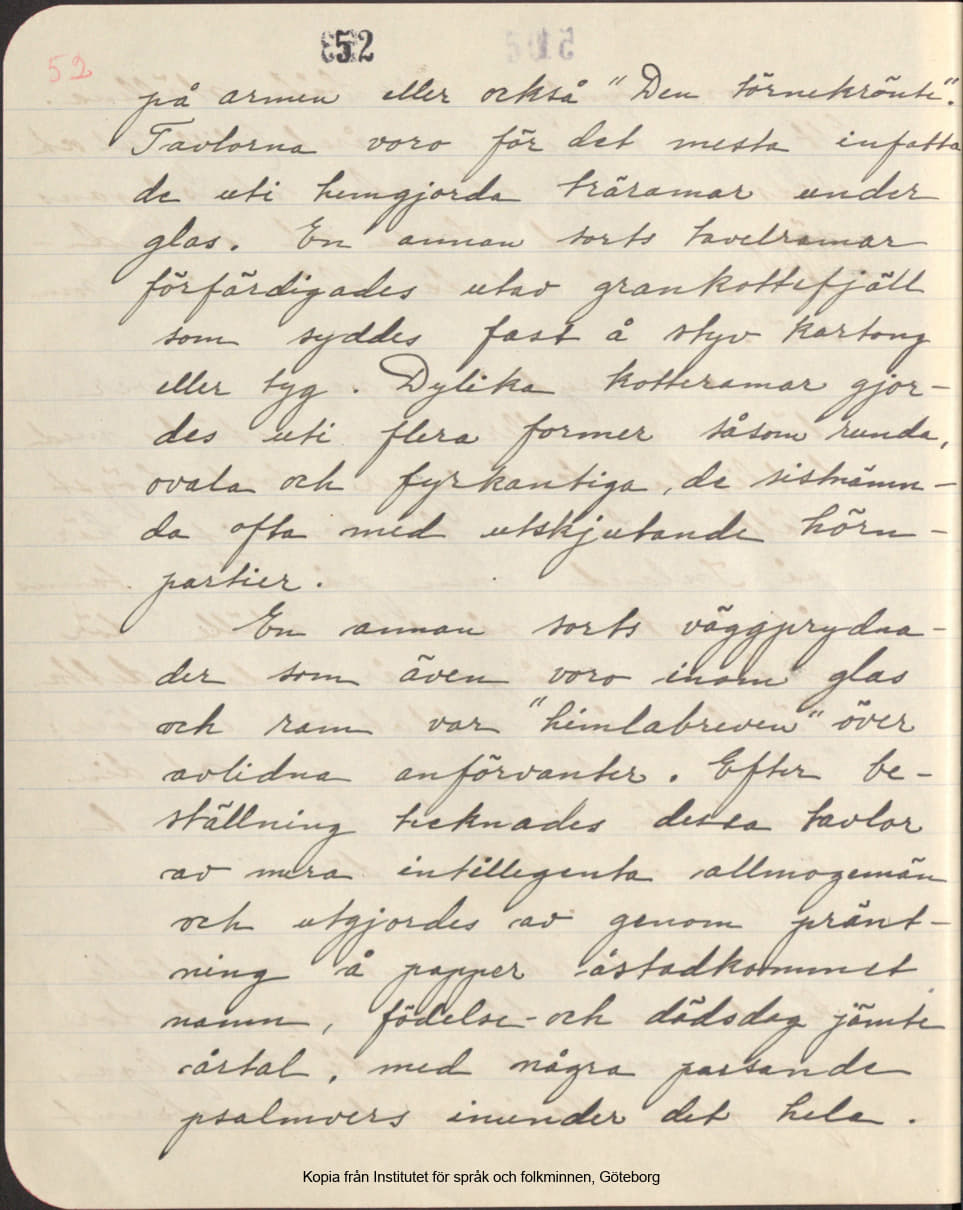 52
52
på armen eller också "Den törnekrönte".
Tavlorna voro för det mesta infatta
de uti hemgjorda träramar under
glas. En annan sorts tavelramar
förfärdigades utav grankottefjäll
som syddes fast å styv kartong
eller tyg. Dylika kotteramar gjor-
des uti flera former såsom runda,
ovala och fyrkantiga, de sistnämn-
da ofta med utskjutande hörn-
partier.
En annan sorts väggprydna-
der som även voro inom glas
och ram var "himlabreven" över
avlidna anförvanter. Efter be-
ställning tecknades dessa tavlor
av mera intilligenta allmogemän
och utgjordes av genom pränt-
ning å papper åstadkommet
namn, födelse- och dödsdag jämte
årtal, med några passande
psalmvers inunder det hela.
Kopia från Institutet för språk och folkminnen, Göteborg